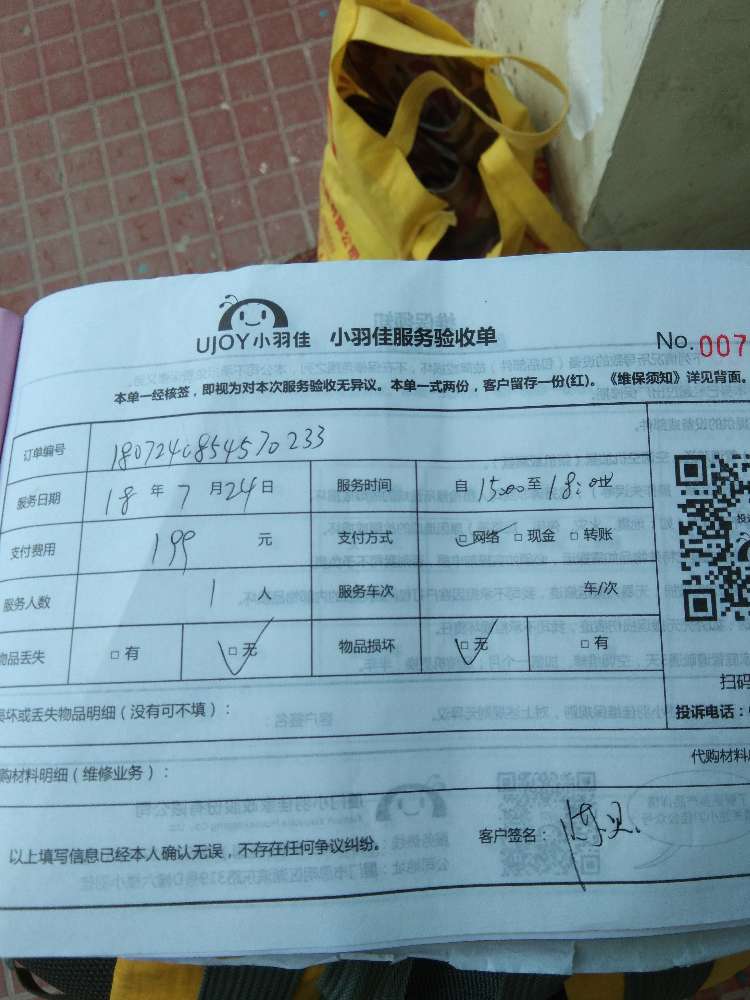 UJOY小羽佳 小羽佳服务验收单
No. 007
本单一经核签，即视为对本次服务验收无异议。本单一式两份，客户留存一份(红)。《维保须知》详见背面。
订单编号 1807240854570233
服务日期 18 年 7 月 24 日 服务时间 自 15:00 至 18:00
支付费用 199 元 支付方式 □网络 □现金 □转账
服务人数 1 人 服务车次 车/次
物品丢失 □有 □无 物品损坏 □无 □有
损坏或丢失物品明细（没有可不填）：
扫码
投诉电话：
购材料明细（维修业务）：
代购材料
以上填写信息已经本人确认无误，不存在任何争议纠纷。
客户签名：